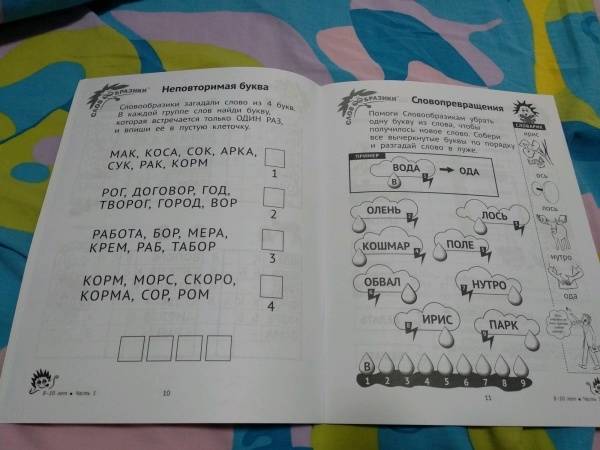 СЛОВООБРАЗИКИ
Неповторимая буква
Словообразики загадали слово из 4 букв.
В каждой группе слов найди букву,
которая встречается только ОДИН РАЗ,
и впиши её в пустую клеточку.
МАК, КОСА, СОК, АРКА,
СУК, РАК, КОРМ
1
РОГ, ДОГОВОР, ГОД,
ТВОРОГ, ГОРОД, ВОР
2
РАБОТА, БОР, МЕРА,
КРЕМ, РАБ, ТАБОР
3
КОРМ, МОРС, СКОРО,
КОРМА, СОР, РОМ
4
8-10 лет • Часть 1
10
СЛОВООБРАЗИКИ
Словопревращения
Помоги Словообразикам убрать
одну букву из слова, чтобы
получилось новое слово. Собери
все вычеркнутые буквы по порядку
и разгадай слово в луже.
ПРИМЕР
ВОДА → ОДА
В
ОЛЕНЬ
ЛОСЬ
КОШМАР
ПОЛЕ
ОБВАЛ
НУТРО
ИРИС
ПАРК
В
1 2 3 4 5 6 7 8 9
11
8-10 лет • Часть 1
СЛОВАРИК
ирис
ось
лось
нутро
ода